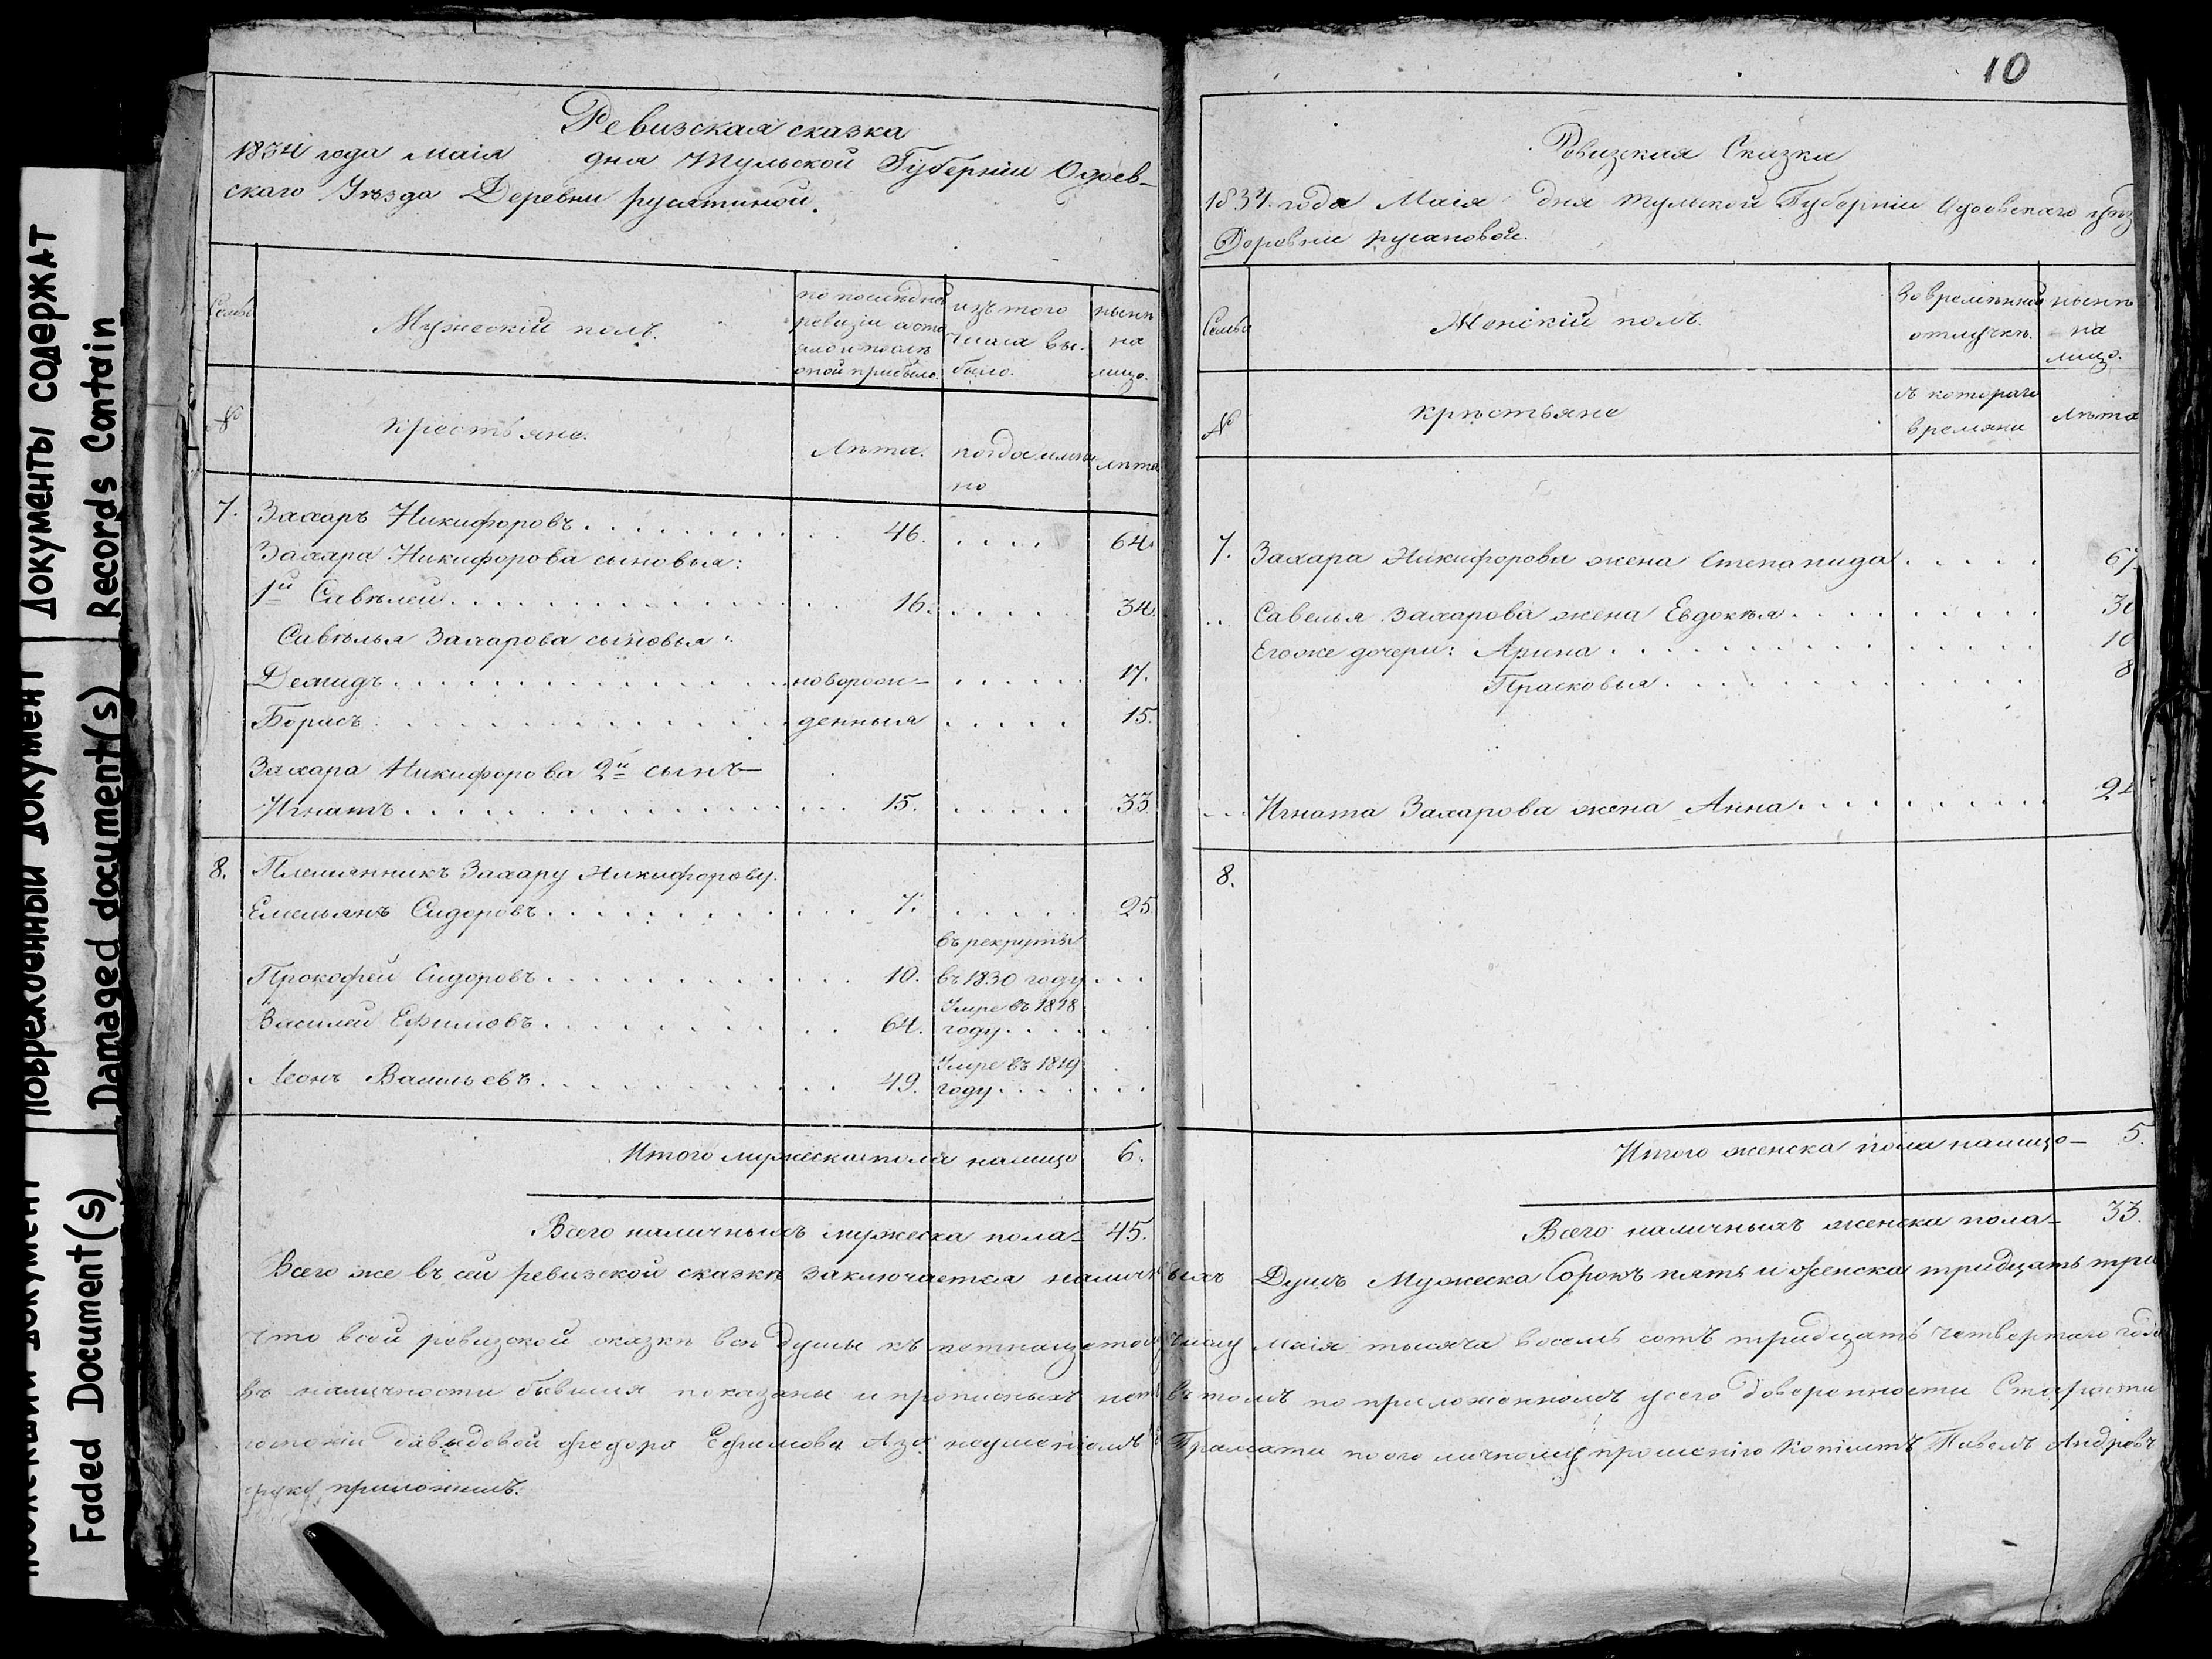 10
Документы содержат
Records Contain
Поврежденный документ
Damaged document(s)
документ
Faded Document(s)
Ревизская сказка
1834 года маія дня Тульской Губерніи Одоев-
скаго Уѣзда Деревни
Семьи
Мужескій полъ.
по последней
ревизіи состо
яло и послѣ
оной прибыло.
изъ того
числа вы-
было.
нынѣ
на
лицо.
№
крестьяне.
Лѣта.
когда имѧнно
лѣта
7. Захаръ Никифоровъ 46. 64.
Захара Никифорова сыновья:
1й Савѣлей 16. 34.
Савѣлья Захарова сыновья:
Демидъ новорож- 17.
Борисъ денныя 15.
Захара Никифорова 2й сынъ-
Игнатъ 15. 33
8. Племянникъ Захару Никифорову.
Емельянъ Сидоровъ 7. 25.
въ рекруты
Прокофей Сидоровъ 10. въ 1830 году
Умре въ 1818
Василей Ефимовъ 64. году
Умре въ 1819
Леонъ Васильевъ 49. году
Итого мужеска пола налицо 6.
Всего наличныхъ мужеска пола- 45.
Ревизская Сказка
1834 года Маія дня тульской Губерніи Одоевскаго уѣз
Деровни русановой.
Семьи
Женскій полъ.
Во временной
отлучкѣ.
нынѣ
на
лицо.
№
крѣстьяне
съ котораго
времяни
лѣта
7. Захара Никифорова жена Степанида 67
Савелья Захарова жена Евдокѣя 30
Егоже дочери: Арина 10
Прасковья 8
Игната Захарова жена Анна 24
8.
Итого женска пола налицо- 5.
Всего наличныхъ женска пола- 33.
Всего же въ сей ревизской сказкѣ заключается наличныхъ Душъ Мужеска Сорокъ пять и женска тридцать три
Что всей ревизской сказкѣ всѣ души къ числу Маія тысяча восемь сотъ тридцать четвертаго года
въ наличности бывшия показаны и прописныхъ нетъ въ томъ по приложенномъ усего доверенности Старосты
давыдовой федора Ефимова Азъ неуменіемъ Грамати по ого личному прошенію Павелъ
руку приложилъ.